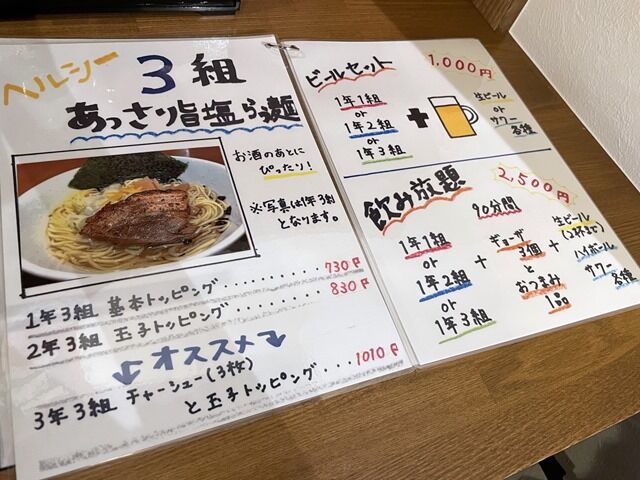 ヘルシー
3組
あっさり旨塩らぁ麺
お酒のあとに
ぴったり!
※写真は1年3組
となります。
1年3組 基本トッピング・・・・・・・・・730円
2年3組 玉子トッピング・・・・・・・・・830円
オススメ
3年3組 チャーシュー(3枚)
と玉子トッピング・・・・1010円
ビールセット
1,000円
1年1組
or
1年2組
or
1年3組
+
生ビール
or
サワー
各種
飲み放題
2,500円
90分間
1年1組
or
1年2組
or
1年3組
+
ギョーザ
3個
と
おつまみ
1品
+
生ビール
(2杯まで)
ハイボール
サワー
各種